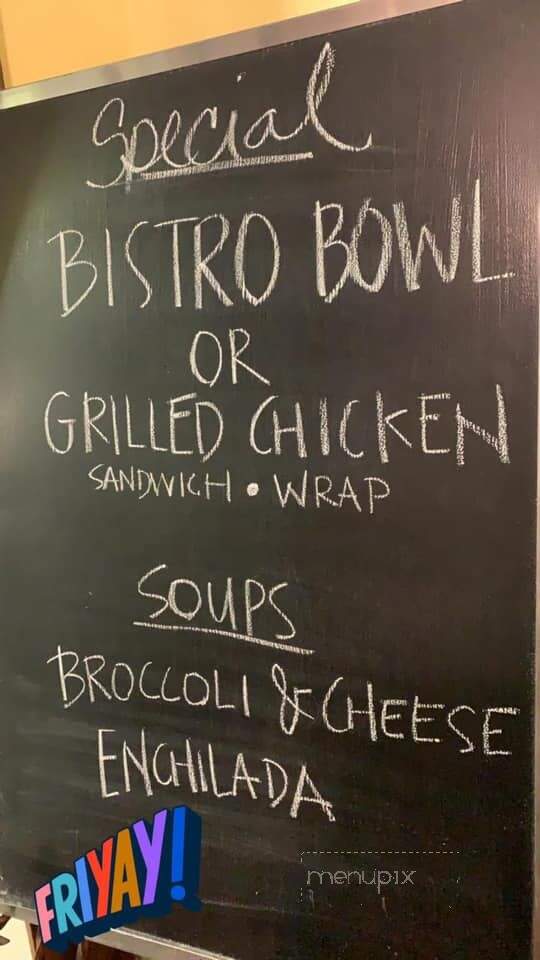 Special
BISTRO BOWL
OR
GRILLED CHICKEN
SANDWICH • WRAP
SOUPS
BROCCOLI & CHEESE
ENCHILADA
FRIYAY!
menupix